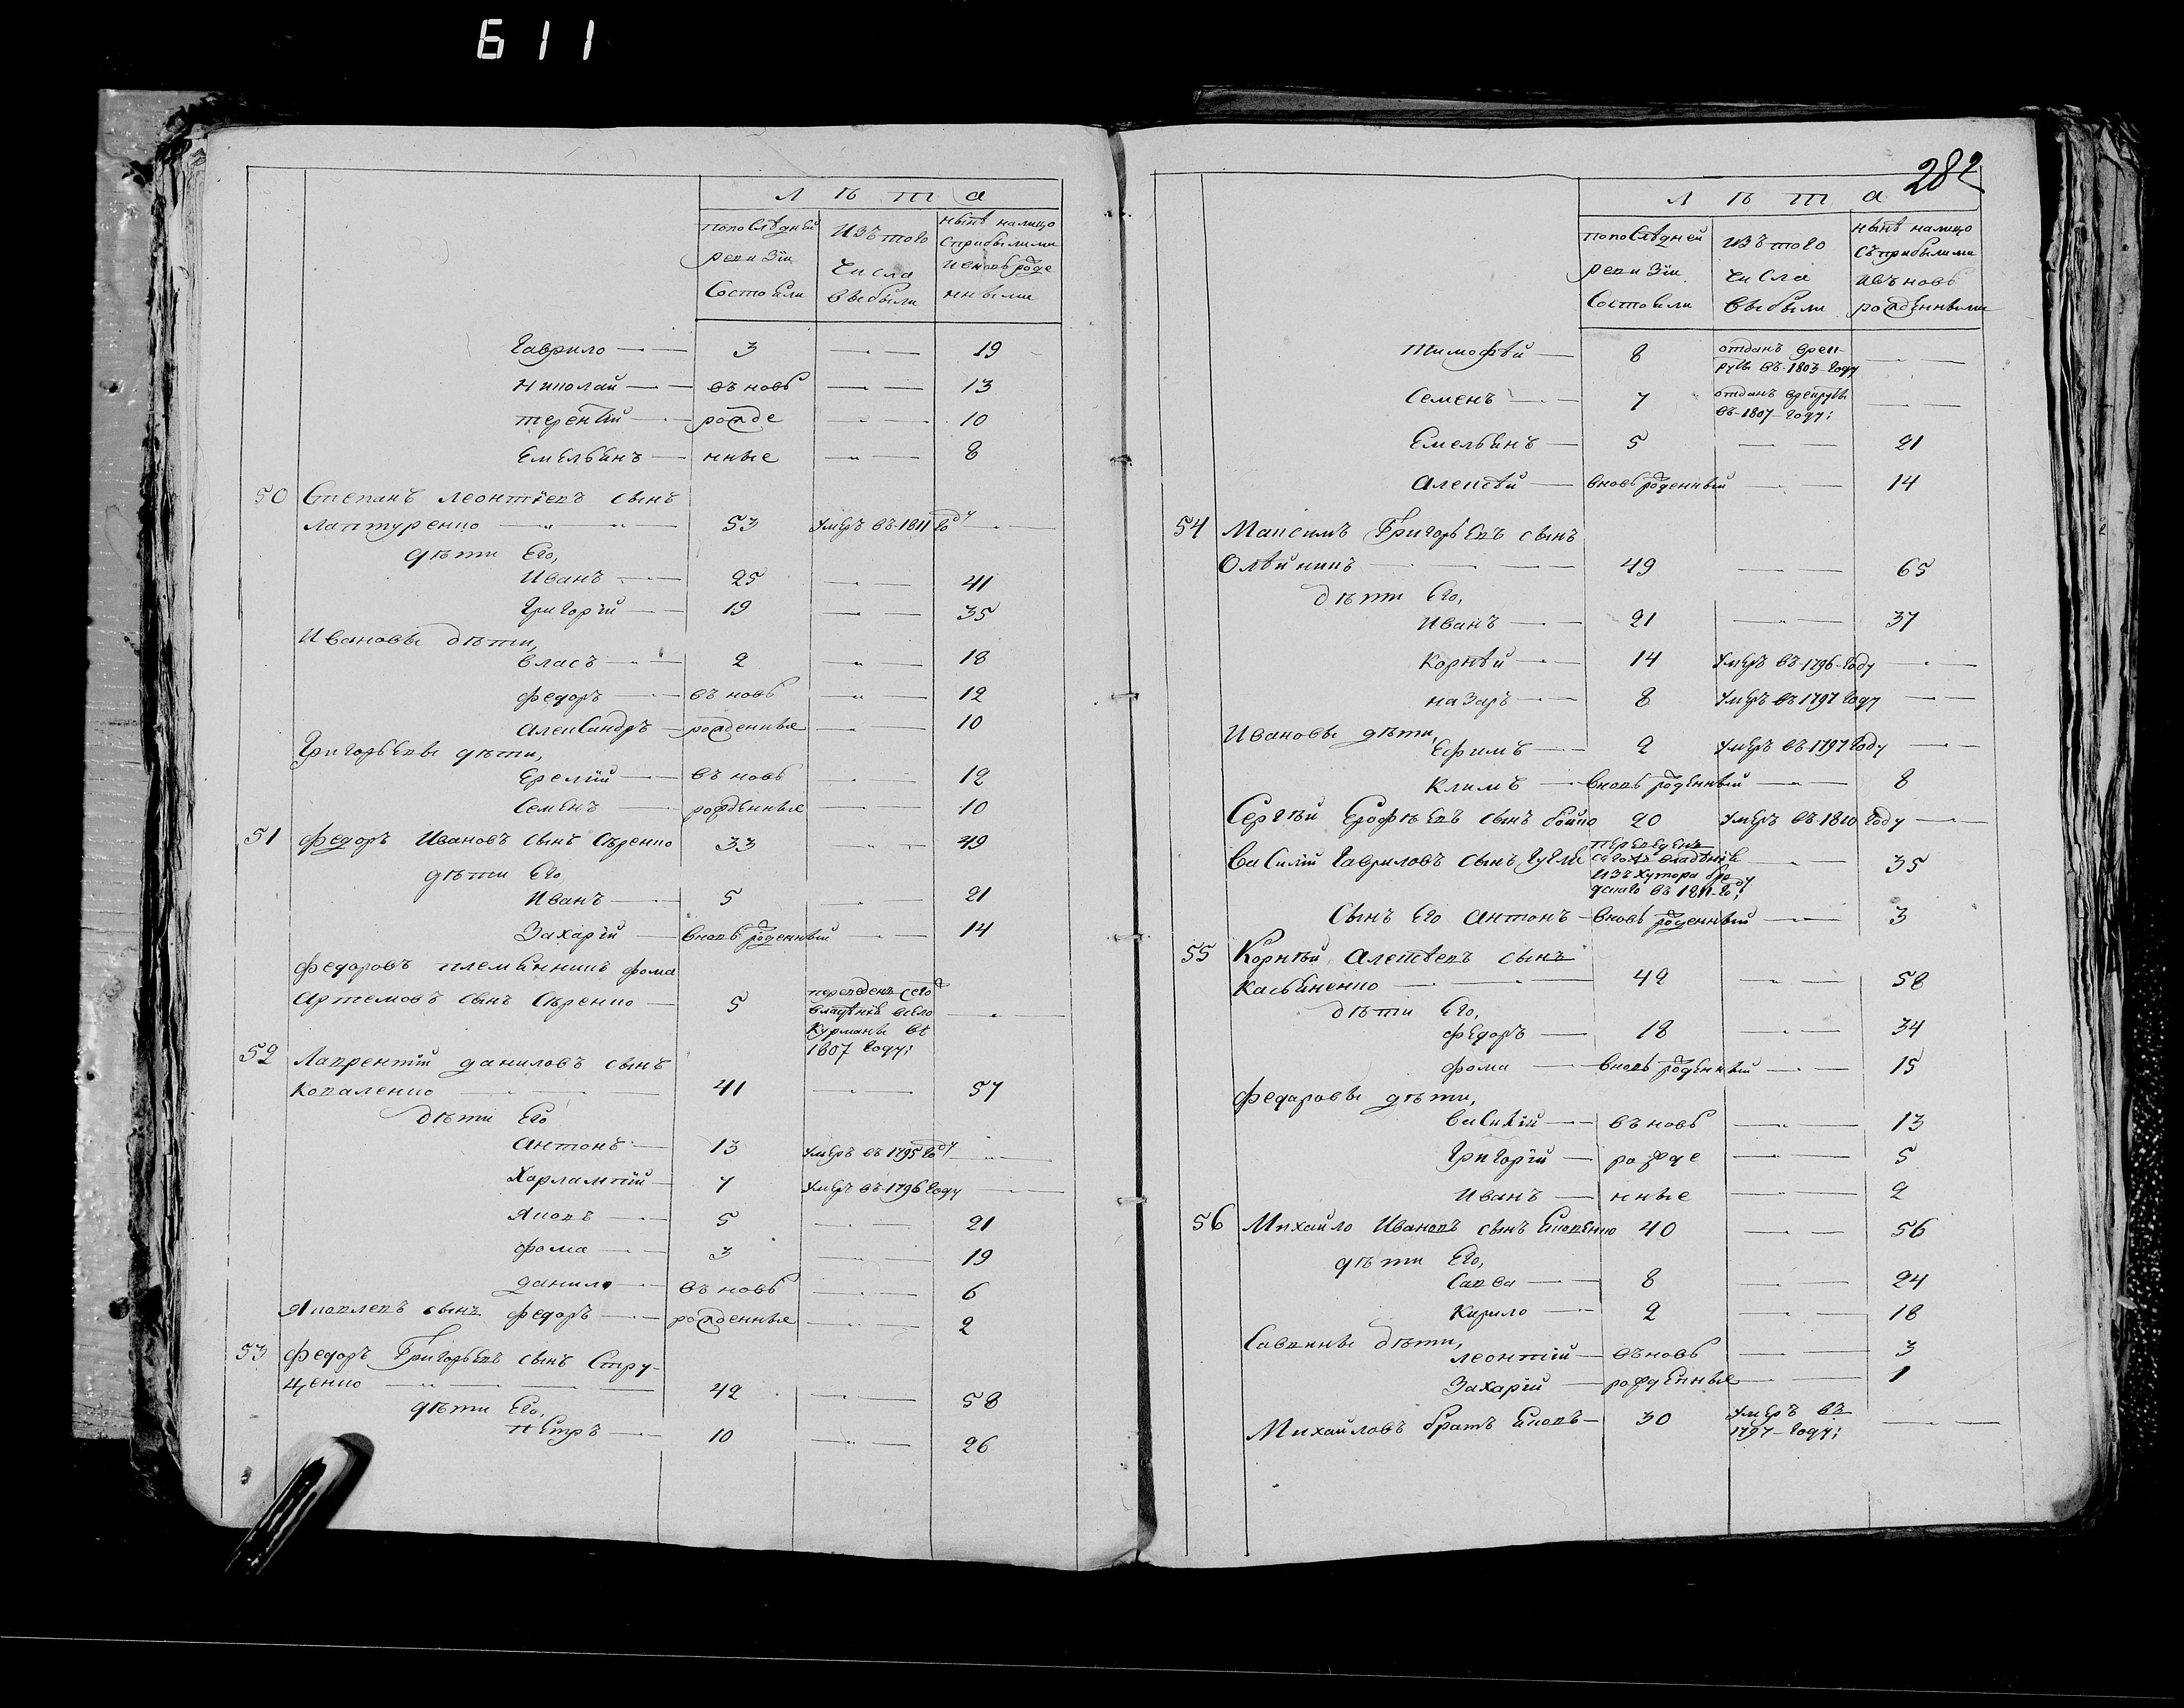 611
Л ѣ т а
попослѣдней
ревизіи
Состояли
Изъ того
Числа
выбыли
нынѣ налицо
Сприбылыми
ивновь рожде
нными
Гаврило 3 19
Николай въновь 13
терентій рожде 10
Емельянъ нные 8
50 Степанъ леонтіевъ сынъ
лаптуренко 53 Умеръ въ 1811 году
дѣти Его,
Иванъ 25 41
Григорій 19 35
Ивановы дѣти,
власъ 2 18
федоръ въновь 12
александръ рожденные 10
Григорьевы дѣти,
въновь 12
Семенъ рожденные 10
51 федоръ Ивановъ сынъ Сѣренко 33 49
дѣти Его
Иванъ 5 21
Захарій вновь рожденный 14
федоровъ племянникъ фома
артемовъ сынъ Сѣренко 5 переведенъ сего
владѣнія всело
Курмани въ
1807 году;
52 Лаврентій даниловъ сынъ
коваленко 41 57
дѣти Его
антонъ 13 Умеръ въ 1795 году
Харлампій 7 Умеръ въ 1796 году
Яковъ 5 21
фома 3 19
данило въновь 6
Яковлевъ сынъ федоръ рожденные 2
53 федоръ Григорьевъ сынъ Стру-
ценко 42 58
дѣти Его,
петръ 10 26
282
Л ѣ т а
попослѣдней
ревизіи
Состояли
Изъ того
числа
выбыли
нынѣ налицо
Съприбылыми
ивъновь
рожденными
тимофѣй 8 отданъ врек-
руты въ 1803 году
Семенъ 7 отданъ врекруты
въ 1807 году;
Емельянъ 5 21
алексѣй вновь рожденный 14
54 Максимъ Григорьевъ сынъ
Олѣйникъ 49 65
дѣти Его,
Иванъ 21 37
корнѣй 14 Умеръ въ 1796 году
назаръ 8 Умеръ въ 1797 году
Ивановы дѣти,
Ефимъ 2 Умеръ въ 1797 году
климъ вновь рожденный 8
Сергѣй Ерофѣевъ сынъ бойко 20 Умеръ въ 1810 году
василій Гавриловъ сынъ переведенъ
сегожъ владѣнія 35
изъ хутора
въ 1811 году;
Сынъ Его антонъ вновь рожденный 3
55 Корнѣй алексѣевъ сынъ
касьяненко 42 58
дѣти Его,
федоръ 18 34
фома вновь рожденный 15
федоровы дѣти,
василій въновь 13
Григорій рожде 5
Иванъ нные 2
56 Михайло Ивановъ сынъ Яковенко 40 56
дѣти Его,
Савва 8 24
Кирило 2 18
Саввины дѣти,
леонтій въновь 3
Захарій рожденные 1
Михайловъ братъ Яковъ 30 умеръ въ
1797 году;